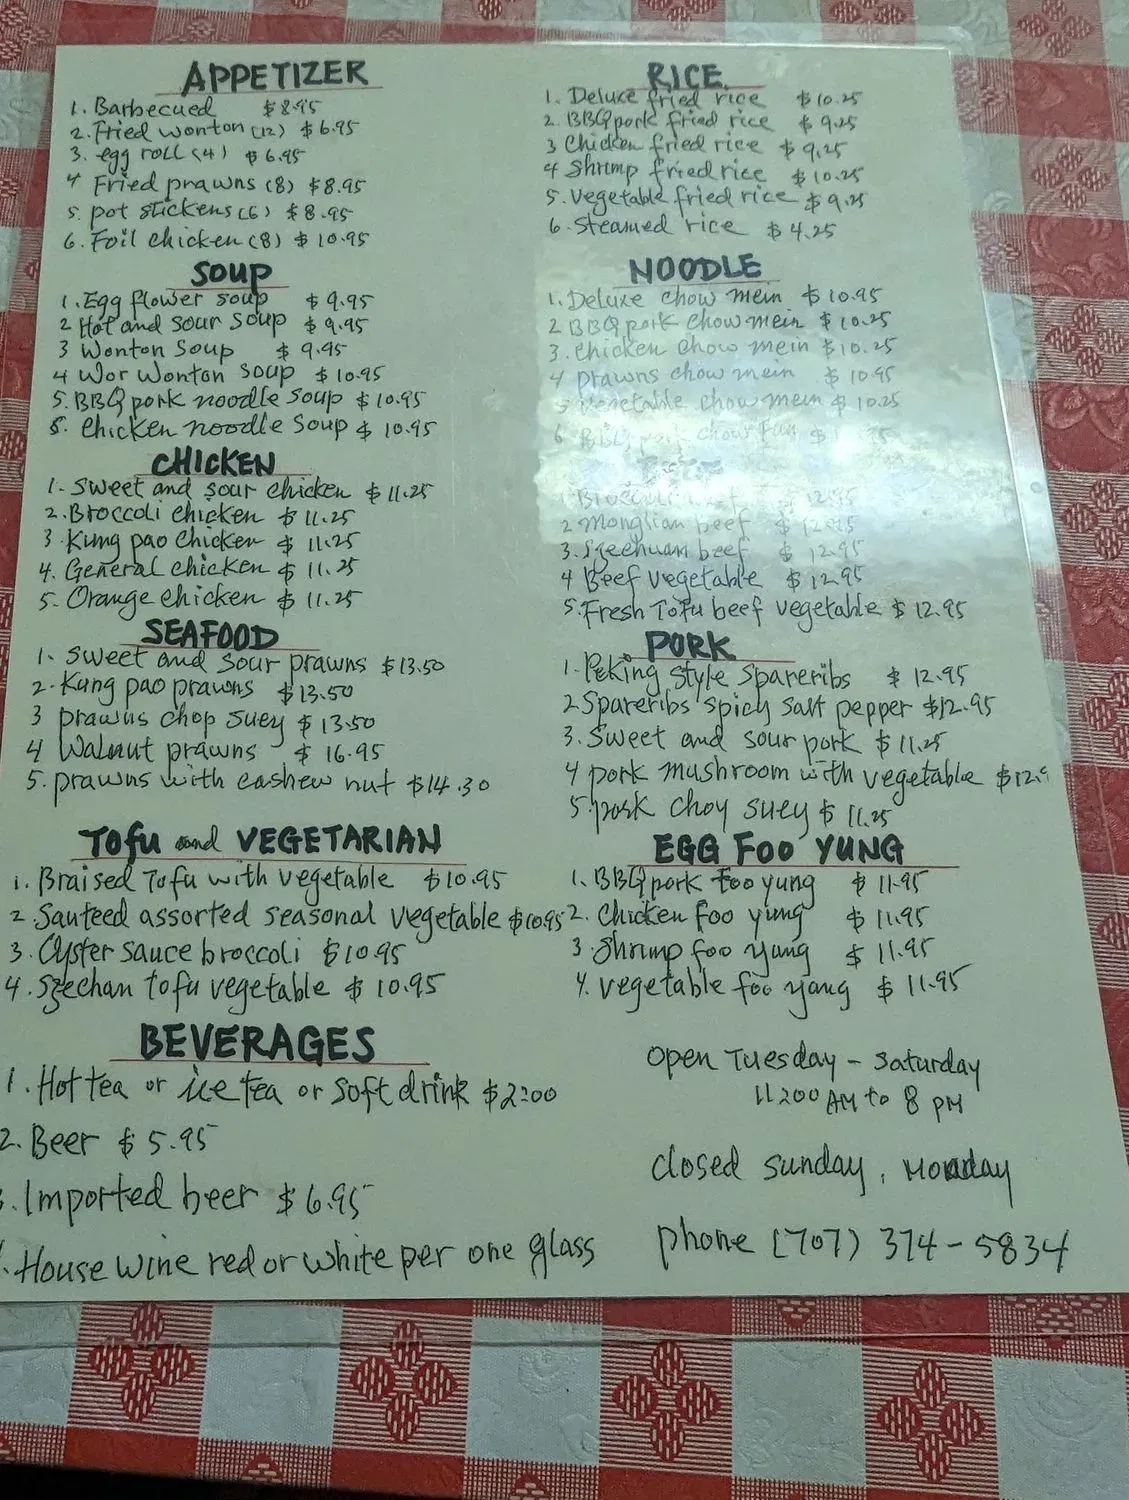 APPETIZER
1. Barbecued $8.95
2. Fried wonton (12) $6.95
3. egg roll (4) $6.95
4 Fried prawns (8) $8.95
5. pot stickens (6) $8.95
6. Foil chicken (8) $10.95
SOUP
1. Egg flower soup $9.95
2 Hot and sour soup $9.95
3 Wonton soup $9.95
4 Wor Wonton soup $10.95
5. BBQ pork noodle soup $10.95
5. Chicken noodle soup $10.95
CHICKEN
1. Sweet and sour chicken $11.25
2. Broccoli chicken $11.25
3. Kung pao chicken $11.25
4. General chicken $11.25
5. Orange chicken $11.25
SEAFOOD
1. Sweet and sour prawns $13.50
2. Kung pao prawns $13.50
3 prawns chop suey $13.50
4 Walnut prawns $16.95
5. prawns with cashew nut $14.30
TOFU and VEGETARIAN
1. Braised Tofu with vegetable $10.95
2. Sauteed assorted seasonal vegetable $10.95
3. Oyster sauce broccoli $10.95
4. Szechan tofu vegetable $10.95
BEVERAGES
1. Hot tea or ice tea or soft drink $2:00
2. Beer $5.95
3. Imported beer $6.95
House wine red or white per one glass
RICE
1. Deluxe fried rice $10.25
2. BBQ pork fried rice $9.25
3 Chicken fried rice $9.25
4 Shrimp fried rice $10.25
5. vegetable fried rice $9.25
6. Steamed rice $4.25
NOODLE
1. Deluxe chow mein $10.95
2 BBQ pork chow mein $10.25
3. chicken chow mein $10.25
4 prawns chow mein $10.95
5 vegetable chow mein $10.25
6 BBQ pork chow fun
1 Broccoli beef 12.95
2 Monglian beef $12.95
3. Szechuan beef $12.95
4 Beef vegetable $12.95
5. Fresh Tofu beef vegetable $12.95
PORK
1. Peking style spareribs $12.95
2 Spareribs spicy salt pepper $12.95
3. Sweet and sour pork $11.25
4 pork mushroom with vegetable $12.9
5. pork choy suey $11.25
EGG FOO YUNG
1. BBQ pork foo yung $11.95
2. Chicken foo yung $11.95
3. Shrimp foo yang $11.95
4. vegetable foo yang $11.95
open Tuesday - Saturday
11:00 AM to 8 PM
closed sunday, Monday
phone (707) 374-5834